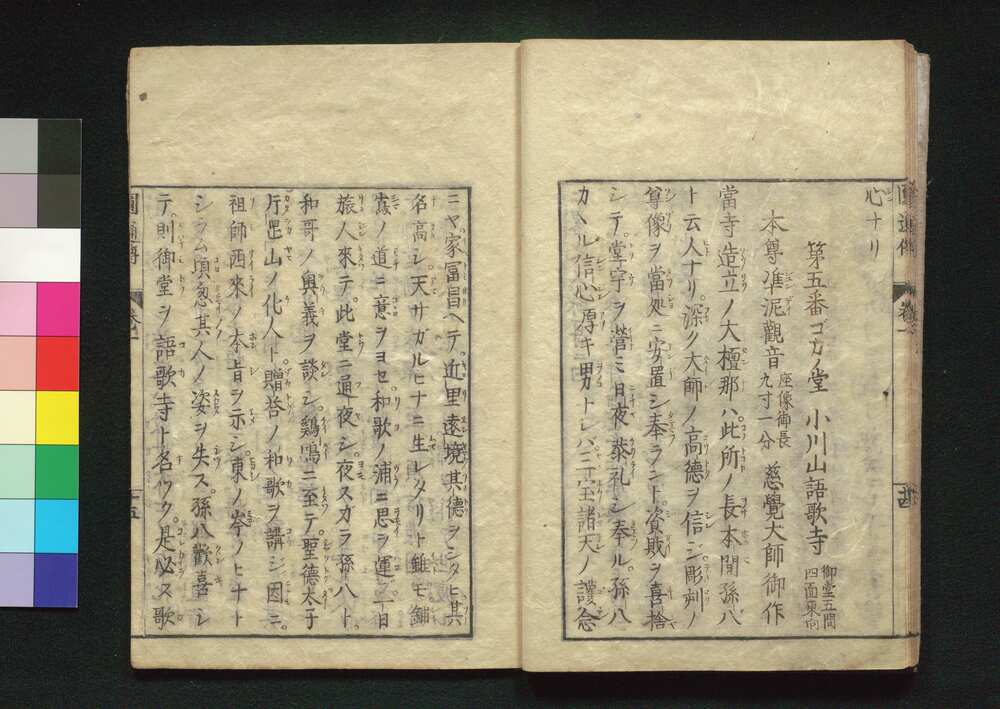 圓通傳 卷一 廿
心ナリ
第五番ゴカノ堂 小川山語歌寺 御堂五間 四面東向
本尊准泥觀音 座像御長 九寸一分 慈覺大師御作
當寺造立ノ大檀那ハ此所ノ長本間孫八
ト云人ナリ深ク大師ノ高德ヲ信シ彫刻ノ
尊像ヲ當処ニ安置シ奉ラント資財ヲ喜捨
シテ堂宇ヲ營ミ日夜恭礼シ奉ル孫八
カヽル信心厚キ男ナレバ三宝諸天ノ護念
ニヤ家冨昌ヘテ近里遠境其德ヲシタヒ其
名高シ天サガルヒナニ生レタリト雖モ鋪
嶌ノ道ニ意ヲヨセ和歌ノ浦ニ思ヲ運フ一日
旅人來テ此堂ニ通夜シ夜スガラ孫八ト
和哥ノ奥義ヲ談シ鷄鳴ニ至テ聖德太子
片岡山ノ化人ト贈答ノ和歌ヲ講シ因ニ
祖師西來ノ本旨ヲ示シ東ノ岑ノヒナト
シラム頃忽其人ノ姿ヲ失ス孫八歡喜シ
テ則御堂ヲ語歌寺ト名ツク是必ス歌
圓通傳 卷一